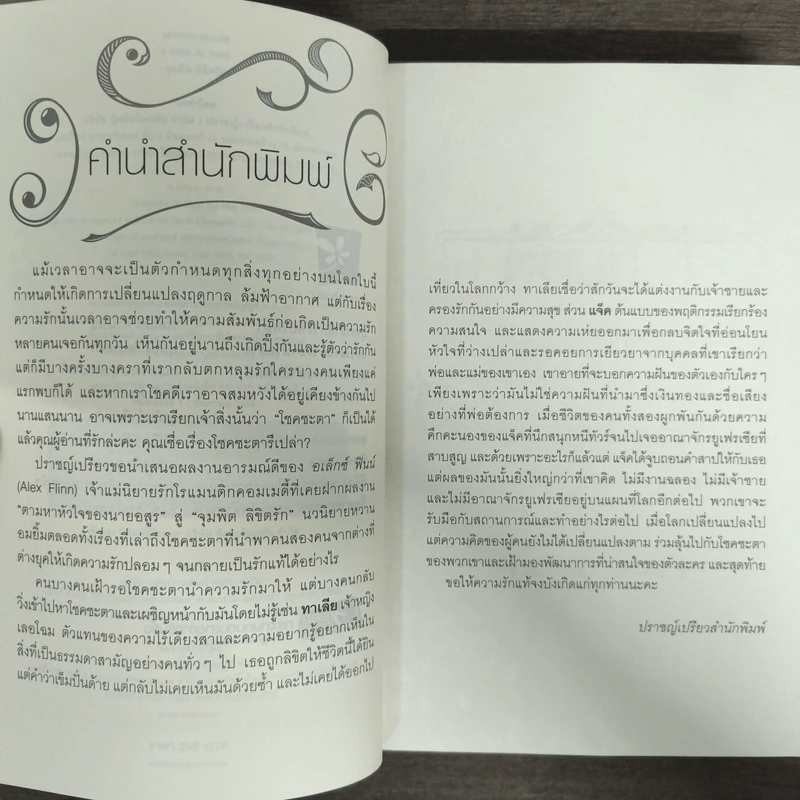 คำนำสำนักพิมพ์
แม้เวลาอาจจะเป็นตัวกำหนดทุกสิ่งทุกอย่างบนโลกใบนี้
กำหนดให้เกิดการเปลี่ยนแปลงฤดูกาล ล้มฟ้าอากาศ แต่กับเรื่อง
ความรักนั้นเวลาอาจช่วยทำให้ความสัมพันธ์ก่อเกิดเป็นความรัก
หลายคนเจอกันทุกวัน เห็นกันอยู่นานถึงเกิดปิ๊งกันและรู้ตัวว่ารักกัน
แต่ก็มีบางครั้งบางคราที่เรากลับตกหลุมรักใครบางคนเพียงแค่
แรกพบก็ได้ และหากเราโชคดีเราอาจสมหวังได้อยู่เคียงข้างกันไป
นานแสนนาน อาจเพราะเราเรียกเจ้าสิ่งนั้นว่า "โชคชะตา" ก็เป็นได้
แล้วคุณผู้อ่านที่รักล่ะคะ คุณเชื่อเรื่องโชคชะตารึเปล่า?
ปราชญ์เปรียวขอนำเสนอผลงานอารมณ์ดีของ อเล็กซ์ ฟินน์
(Alex Flinn) เจ้าแม่นิยายรักโรแมนติกคอมเมดี้ที่เคยฝากผลงาน
"ตามหาหัวใจของนายอสูร" สู่ "จุมพิต ลิขิตรัก" นวนิยายหวาน
อมยิ้มตลอดทั้งเรื่องที่เล่าถึงโชคชะตาที่นำพาคนสองคนจากต่างที่
ต่างยุคให้เกิดความรักปลอมๆ จนกลายเป็นรักแท้ได้อย่างไร
คนบางคนเฝ้ารอโชคชะตานำความรักมาให้ แต่บางคนกลับ
วิ่งเข้าไปหาโชคชะตาและเผชิญหน้ากับมันโดยไม่รู้เช่น ทาเลีย เจ้าหญิง
เลอโฉม ตัวแทนของความไร้เดียงสาและความอยากรู้อยากเห็นใน
สิ่งที่เป็นธรรมดาสามัญอย่างคนทั่วๆ ไป เธอถูกลิขิตให้ชีวิตนี้ได้ยิน
แต่คำว่าเข็มปั่นด้าย แต่กลับไม่เคยเห็นมันด้วยซ้ำ และไม่เคยได้ออกไป
เที่ยวในโลกกว้าง ทาเลียเชื่อว่าสักวันจะได้แต่งงานกับเจ้าชายและ
ครองรักกันอย่างมีความสุข ส่วน แจ็ค ต้นแบบของพฤติกรรมเรียกร้อง
ความสนใจ และแสดงความเห่ยออกมาเพื่อกลบจิตใจที่อ่อนโยน
หัวใจที่ว่างเปล่าและรอคอยการเยียวยาจากบุคคลที่เขาเรียกว่า
พ่อและแม่ของเขาเอง เขาอายที่จะบอกความฝันของตัวเองกับใครๆ
เพียงเพราะว่ามันไม่ใช่ความฝันที่นำมาซึ่งเงินทองและชื่อเสียง
อย่างที่พ่อต้องการ เมื่อชีวิตของคนทั้งสองผูกพันกันด้วยความ
คึกคะนองของแจ็คที่นึกสนุกหนีทัวร์จนไปเจออาณาจักรยูเฟรเซียที่
สาบสูญ และด้วยเพราะอะไรก็แล้วแต่ แจ็คได้จูบถอนคำสาปให้กับเธอ
แต่ผลของมันนั้นยิ่งใหญ่กว่าที่เขาคิด ไม่มีงานฉลอง ไม่มีเจ้าชาย
และไม่มีอาณาจักรยูเฟรเซียอยู่บนแผนที่โลกอีกต่อไป พวกเขาจะ
รับมือกับสถานการณ์และทำอย่างไรต่อไป เมื่อโลกเปลี่ยนแปลงไป
แต่ความคิดของผู้คนยังไม่ได้เปลี่ยนแปลงตาม ร่วมลุ้นไปกับโชคชะตา
ของพวกเขาและเฝ้ามองพัฒนาการที่น่าสนใจของตัวละคร และสุดท้าย
ขอให้ความรักแท้จงบังเกิดแก่ทุกท่านนะคะ
ปราชญ์เปรียวสำนักพิมพ์